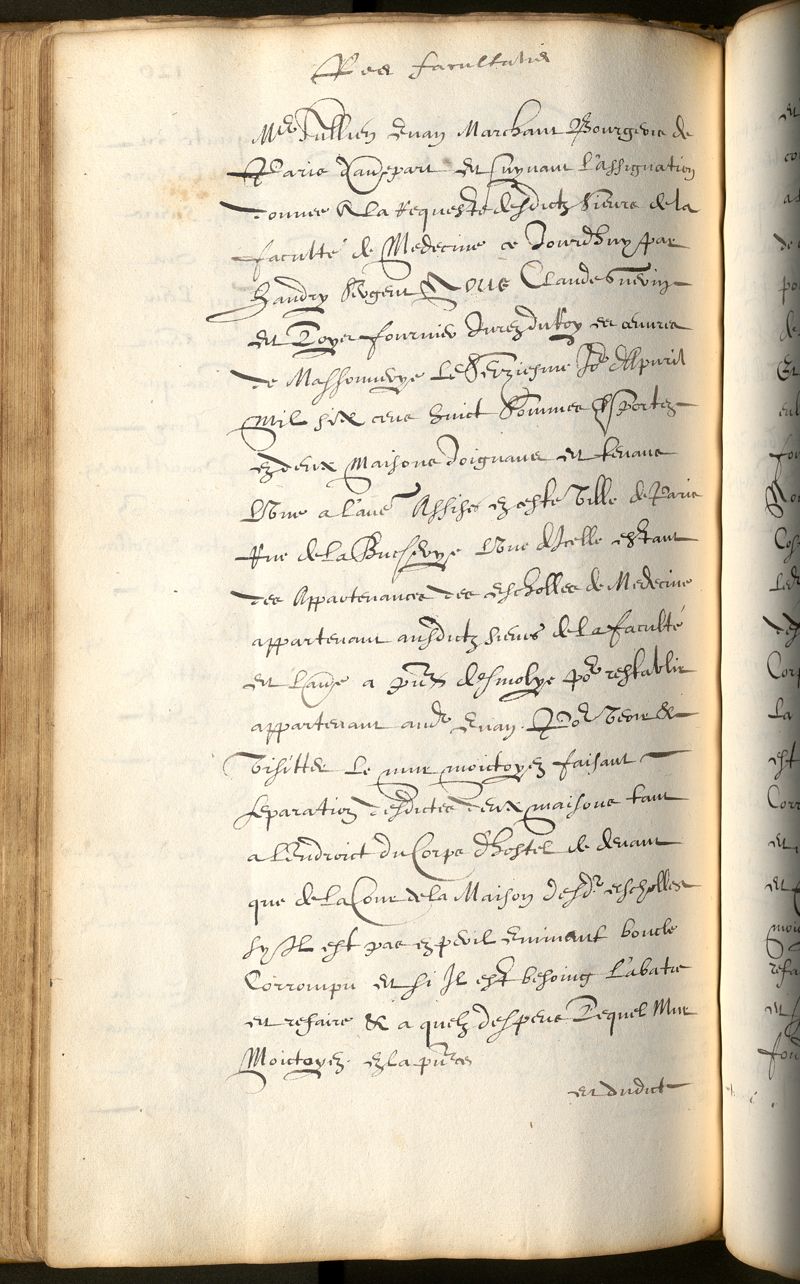 Res facultatis
Me Jullien Evan Marchant Bourgeois de
Paris d'aue part et suyvant l'assignation
donnee A la Requeste desdictz sieurs de la
faculté de Medecine ce Jourdhuy par
handry sergent Nous Claude Guerin
et Toyer fournier Jurez du Roy es œuvres
de Massonnerye Le Seiziesme Jor d'Apvril
Mil six cens huict Sommes trsportez
en deux Maisons Joignans et tenans
L'vne a l'aue Assises en ceste Ville de Paris
Rue de la Bucherye L'vne d'Icelle estant
des Appartenances des escholles de Medecine
appartenant ausdictz sieurs de la faculté
et l'aue a pnt desmolye por restablir
appartenant audt Evan. Por veoir &
visitter Le mur moictoyen faisant
separation desdictes deux maisons tant
a l'Endroict du Corps d'hostel de devant
que de la Cour de la Maison desdt escholles
sy Il est pas en peril Eminent boucle
Corrompu et si Il est besoing l'abatre
et refaire & a quelz despens Lequel Mur
Moictoyen. en la pnce
et dudict